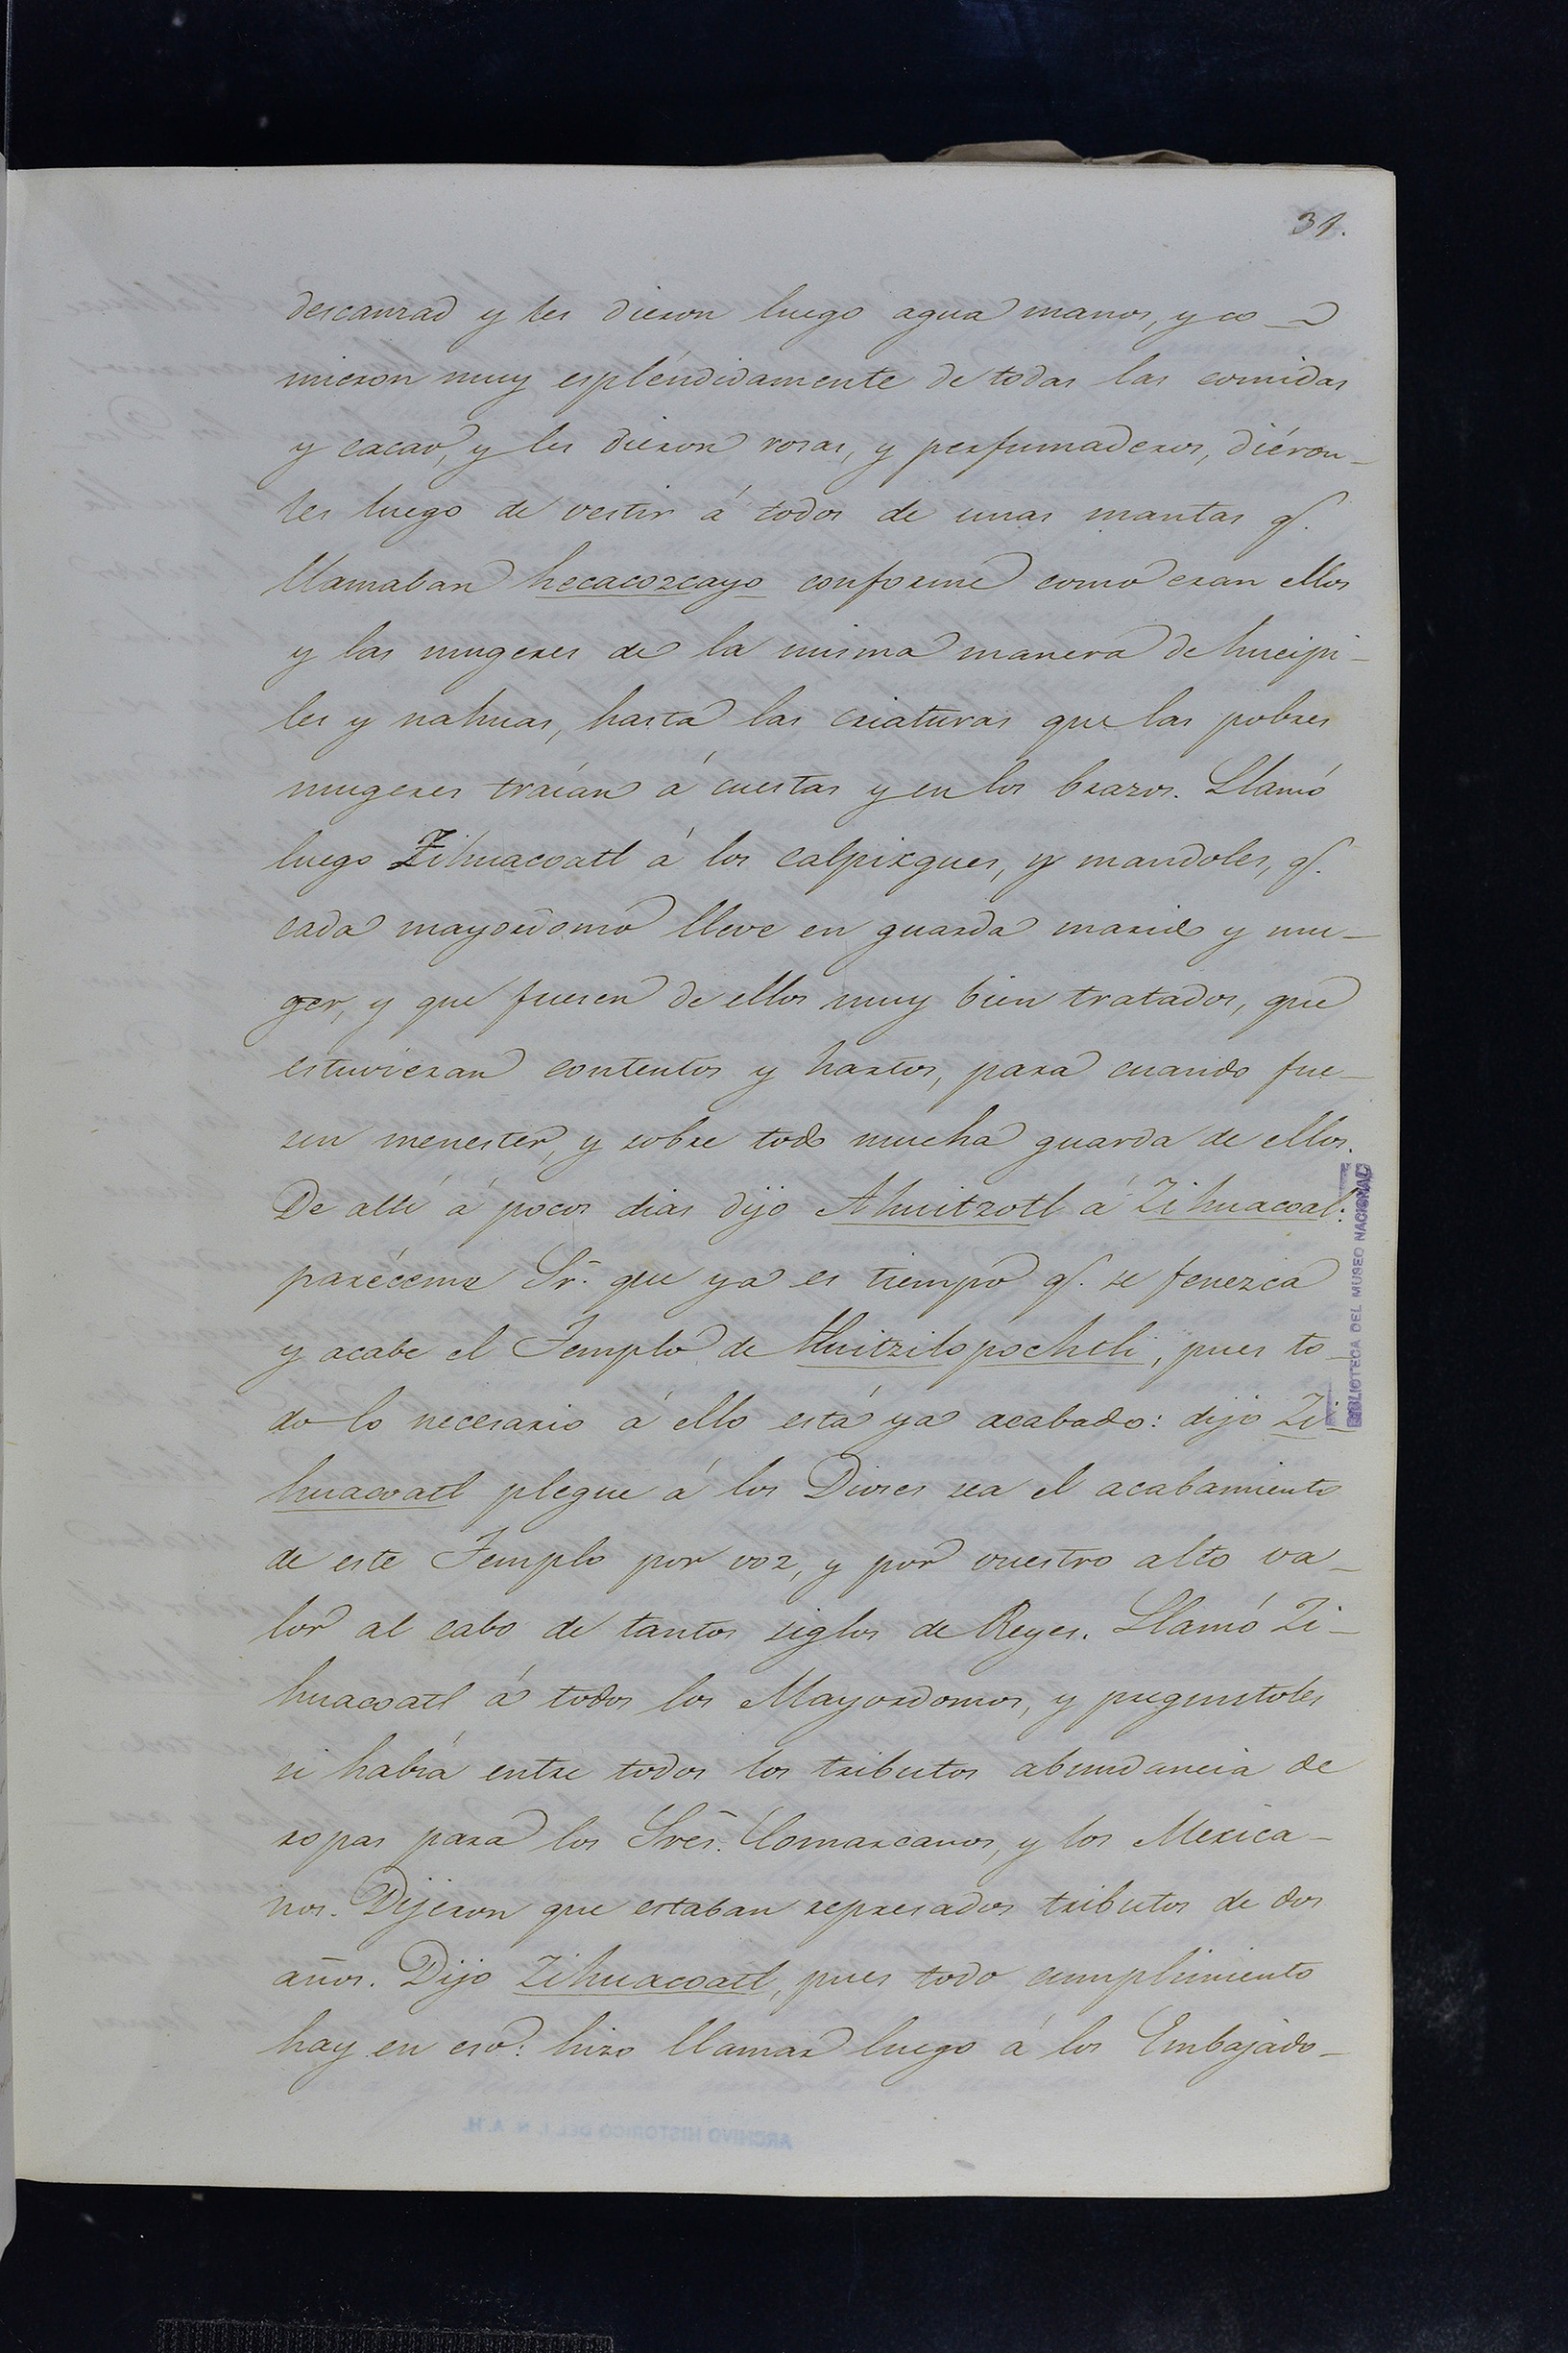 31.
descansad y les dieron luego agua manos, y co-
mieron muy espléndidamente de todas las comidas
y cacao, y les dieron rosas, y perfumaderos, diéron-
les luego de vestir á todos de unas mantas q.
llamaban hecacozcayo conforme como eran ellos
y las mugeres de la misma manera de hueipi-
les y nahuas, hasta las criaturas que las pobres
mugeres traían á cuestas y en los brazos. Llamó
luego Zihuacoatl á los calpixques, y mandoles, q.
cada mayordomo lleve en guarda marido y mu-
ger, y que fuesen de ellos muy bien tratados, que
estuvieran contentos y hartos, para cuando fue-
sen menester, y sobre todo mucha guarda de ellos.
De allí á pocos dias dijo Ahuitzotl á Zihuacoal:
paréceme Sr. que ya es tiempo q. se fenezca
y acabe el Templo de Huitzilopochtli, pues to-
do lo necesario á ello está ya acabado: dijo Zi-
huacoatl plegue á los Dioses sea el acabamiento
de este Templo por voz, y por vuestro alto va-
lor al cabo de tantos siglos de Reyes. Llamó Zi-
huacoatl á todos los Mayordomos, y preguntoles
si había entre todos los tributos abundancia de
ropas para los Sres. Comarcanos, y los Mexica-
nos. Dijeron que estaban represados tributos de dos
años. Dijo Zihuacoatl, pues todo cumplimiento
hay en eso: hizo llamar luego á los Embajado-
BIBLIOTECA DEL MUSEO NACIONAL
ARCHIVO HISTORICO DEL I. N. A. H.